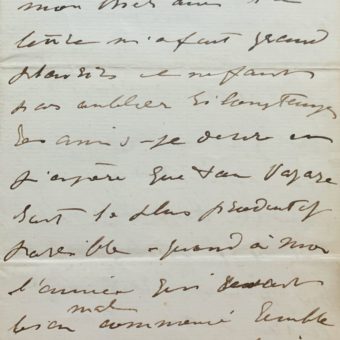 mon cher ami
lettre m'a fait grand
plaisir
pas oublier si longtemps
les amis - je désire et
j'espère que ton voyage
soit le plus productif
possible - quand à moi
l'année qui
mal
bien commencé semble